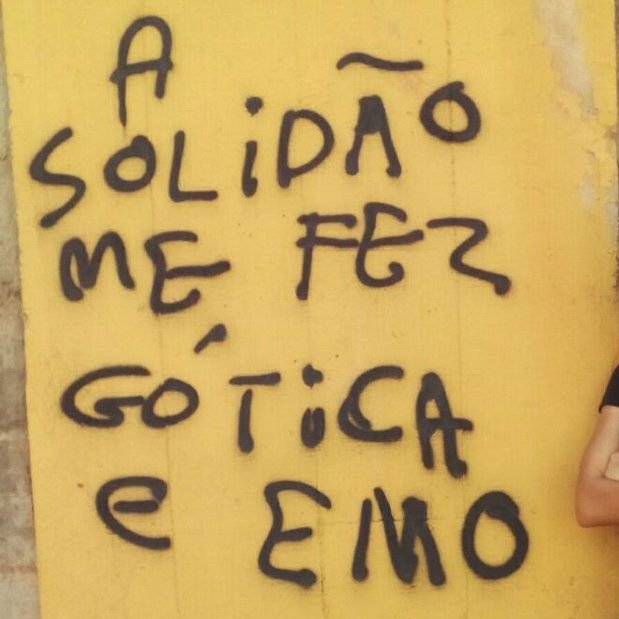 A
SOLiDÃO
ME FEZ
GÓTiCA
e EMO